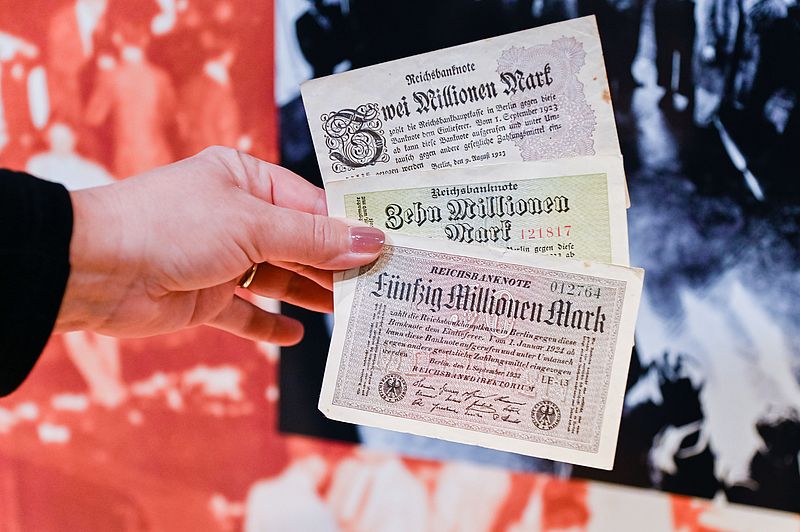 Reichsbanknote
Zwei Millionen Mark
zahlt die Reichsbankhauptkasse in Berlin gegen diese
Banknote dem Einlieferer. Vom 1. September 1923
ab kann diese Banknote aufgerufen und unter Um-
tausch gegen andere gesetzliche Zahlungsmittel ein-
gezogen werden Berlin, den 9. August 1923
Reichsbanknote
Zehn Millionen
Mark 121817
in Berlin gegen diese
ab
REICHSBANKNOTE 012764
Fünfzig Millionen Mark
zahlt die Reichsbankhauptkasse in Berlin gegen diese
Banknote dem Einlieferer. Vom 1. Januar 1924 ab
kann diese Banknote aufgerufen und unter Umtausch
gegen andere gesetzliche Zahlungsmittel eingezogen
werden
Berlin, den 1. September 1923
REICHSBANKDIREKTORIUM LE-13